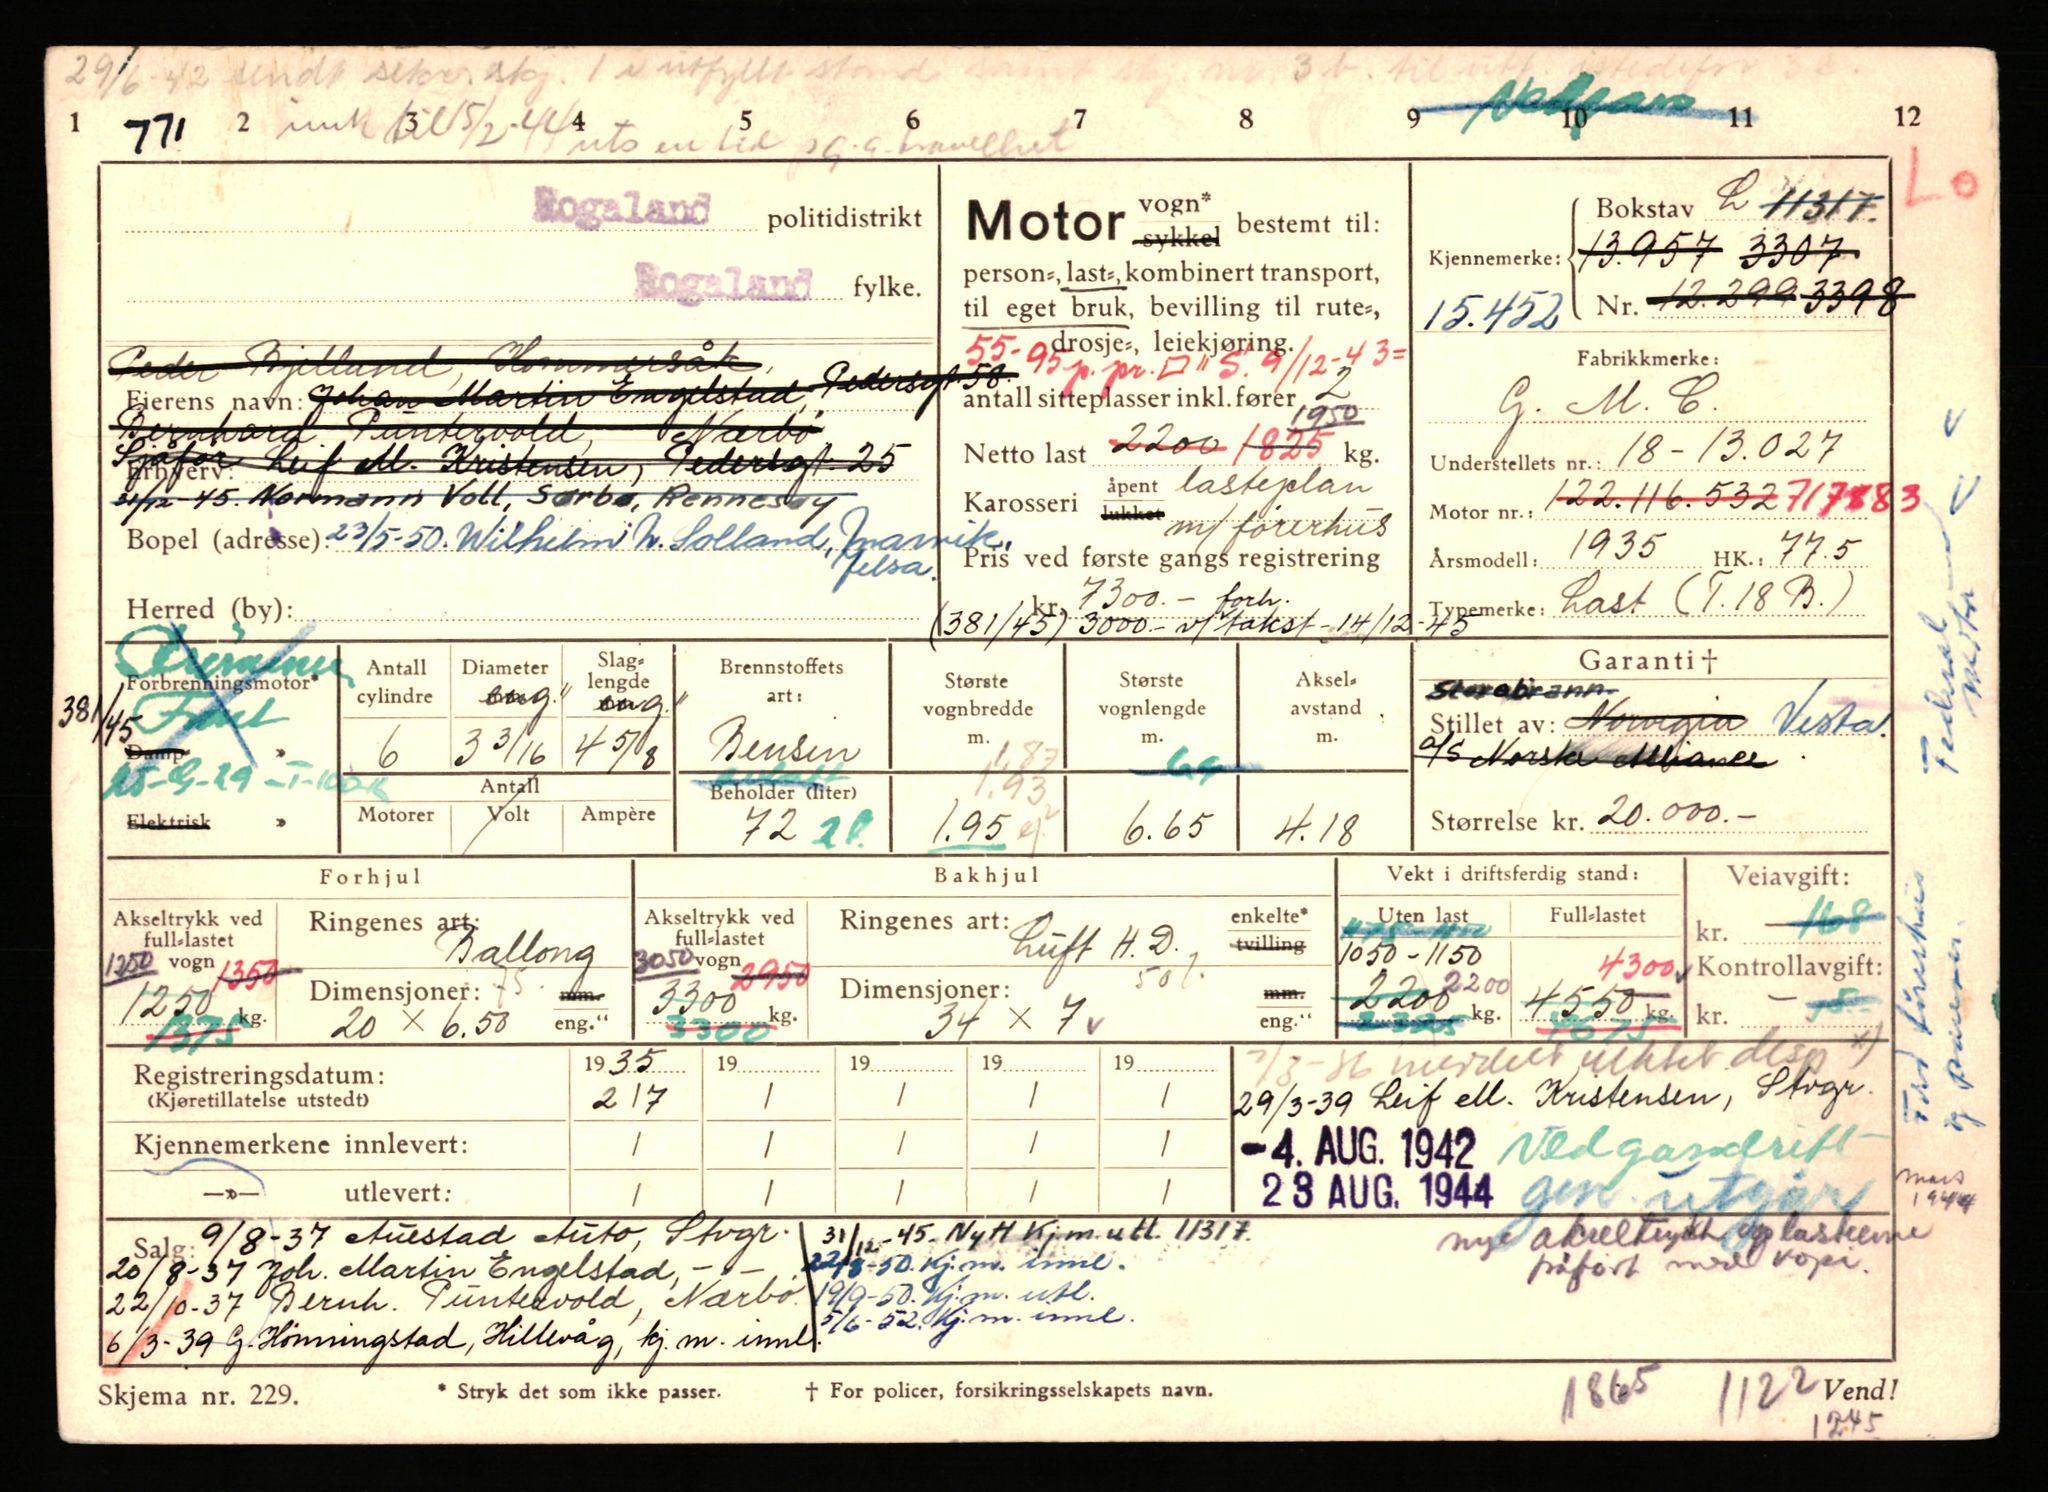 29/6-42 sendt
1 2 3 4 5 6 7 8 9 10 11 12
771
til 15/2-44
Lo
Rogaland politidistrikt
Rogaland fylke.
Peder Bjelland, Hommersåk.
Eierens navn: Johan Martin Engelstad, Pedersgt. 58.
Bernhard Puntervold, Nærbø
Sjåfør Leif M. Kristensen, Pedersgt. 25
Erhverv:
31/12-45. Normann Voll, Sørbø, Rennesøy
Bopel (adresse): 23/5-50. Wilhelm W. Solland, Marvik,
Jelsa.
Herred (by):
Motor vogn* sykkel bestemt til:
person-, last-, kombinert transport,
til eget bruk, bevilling til rute-,
drosje-, leiekjøring.
55-95 p. pr. □" S. 9/12-43
antall sitteplasser inkl. fører 2
1950
Netto last 2200 1825 kg.
Karosseri åpent lukket lasteplan
m/ førerhus
Pris ved første gangs registrering
kr. 7300.- forh.
(381/45) 3000.- v/ takst - 14/12-45
Kjennemerke: Bokstav L 11317.
13.957 3307
15.452 Nr. 12.299 3398
Fabrikkmerke:
G. M. C.
Understellets nr.: 18-13.027
Motor nr.: 122.116.532 717883
Årsmodell: 1935 HK.: 77.5
Typemerke: Last (T.18 B.)
Forbrenningsmotor*
381/45
Damp »
Elektrisk »
Antall cylindre 6
Diameter eng." 3 3/16
Slaglengde eng." 4 5/8
Antall
Motorer Volt Ampère
Brennstoffets art: Bensin
Beholder (liter) 72
Største vognbredde m. 1.87 1.93 1.95
Største vognlengde m. 6.65
Akselavstand m. 4.18
Garanti †
Storebrann
Stillet av: Norvegia Vesta.
A/S Norske Alliance
Størrelse kr. 20.000.-
Forhjul
Akseltrykk ved full-lastet vogn
1250 1350
1250 kg.
1375
Ringenes art: Ballong
Dimensjoner: mm. eng."
20 × 6.50
Bakhjul
Akseltrykk ved full-lastet vogn
3050 2950
3300 kg.
3300
Ringenes art: Luft H. D. enkelte* tvilling
Dimensjoner: mm. eng."
34 × 7
Vekt i driftsferdig stand:
Uten last
1050-1150
2200 2200 kg.
Full-lastet
4300
4550 kg.
Veiavgift:
kr. 168
Kontrollavgift:
kr.
Registreringsdatum: 1935 19 19 19 19
(Kjøretillatelse utstedt) 2/7 / / / /
Kjennemerkene innlevert: / / / / /
—»— utlevert: / / / / /
29/3-39 Leif M. Kristensen, Stvgr.
-4. AUG. 1942 Vedgassdrift
23 AUG. 1944 gen. utgår
mars
1944
nye akseltrykk og lasteevne
påført med kopi.
Salg: 9/8-37 Auestad Auto, Stvgr.
20/8-37 Joh. Martin Engelstad, - - .
22/10-37 Bernh. Puntervold, Nærbø.
6/3-39 G. Hönningstad, Hillevåg, kj. m. innl.
31/12-45. Nytt kj.m. utl. 11317.
22/8-50. Kj. m. innl.
19/9-50. Kj. m. utl.
5/6-52. Kj. m. innl.
Skjema nr. 229. * Stryk det som ikke passer. † For policer, forsikringsselskapets navn.
1865 1122 Vend!
1245
Federal
motor